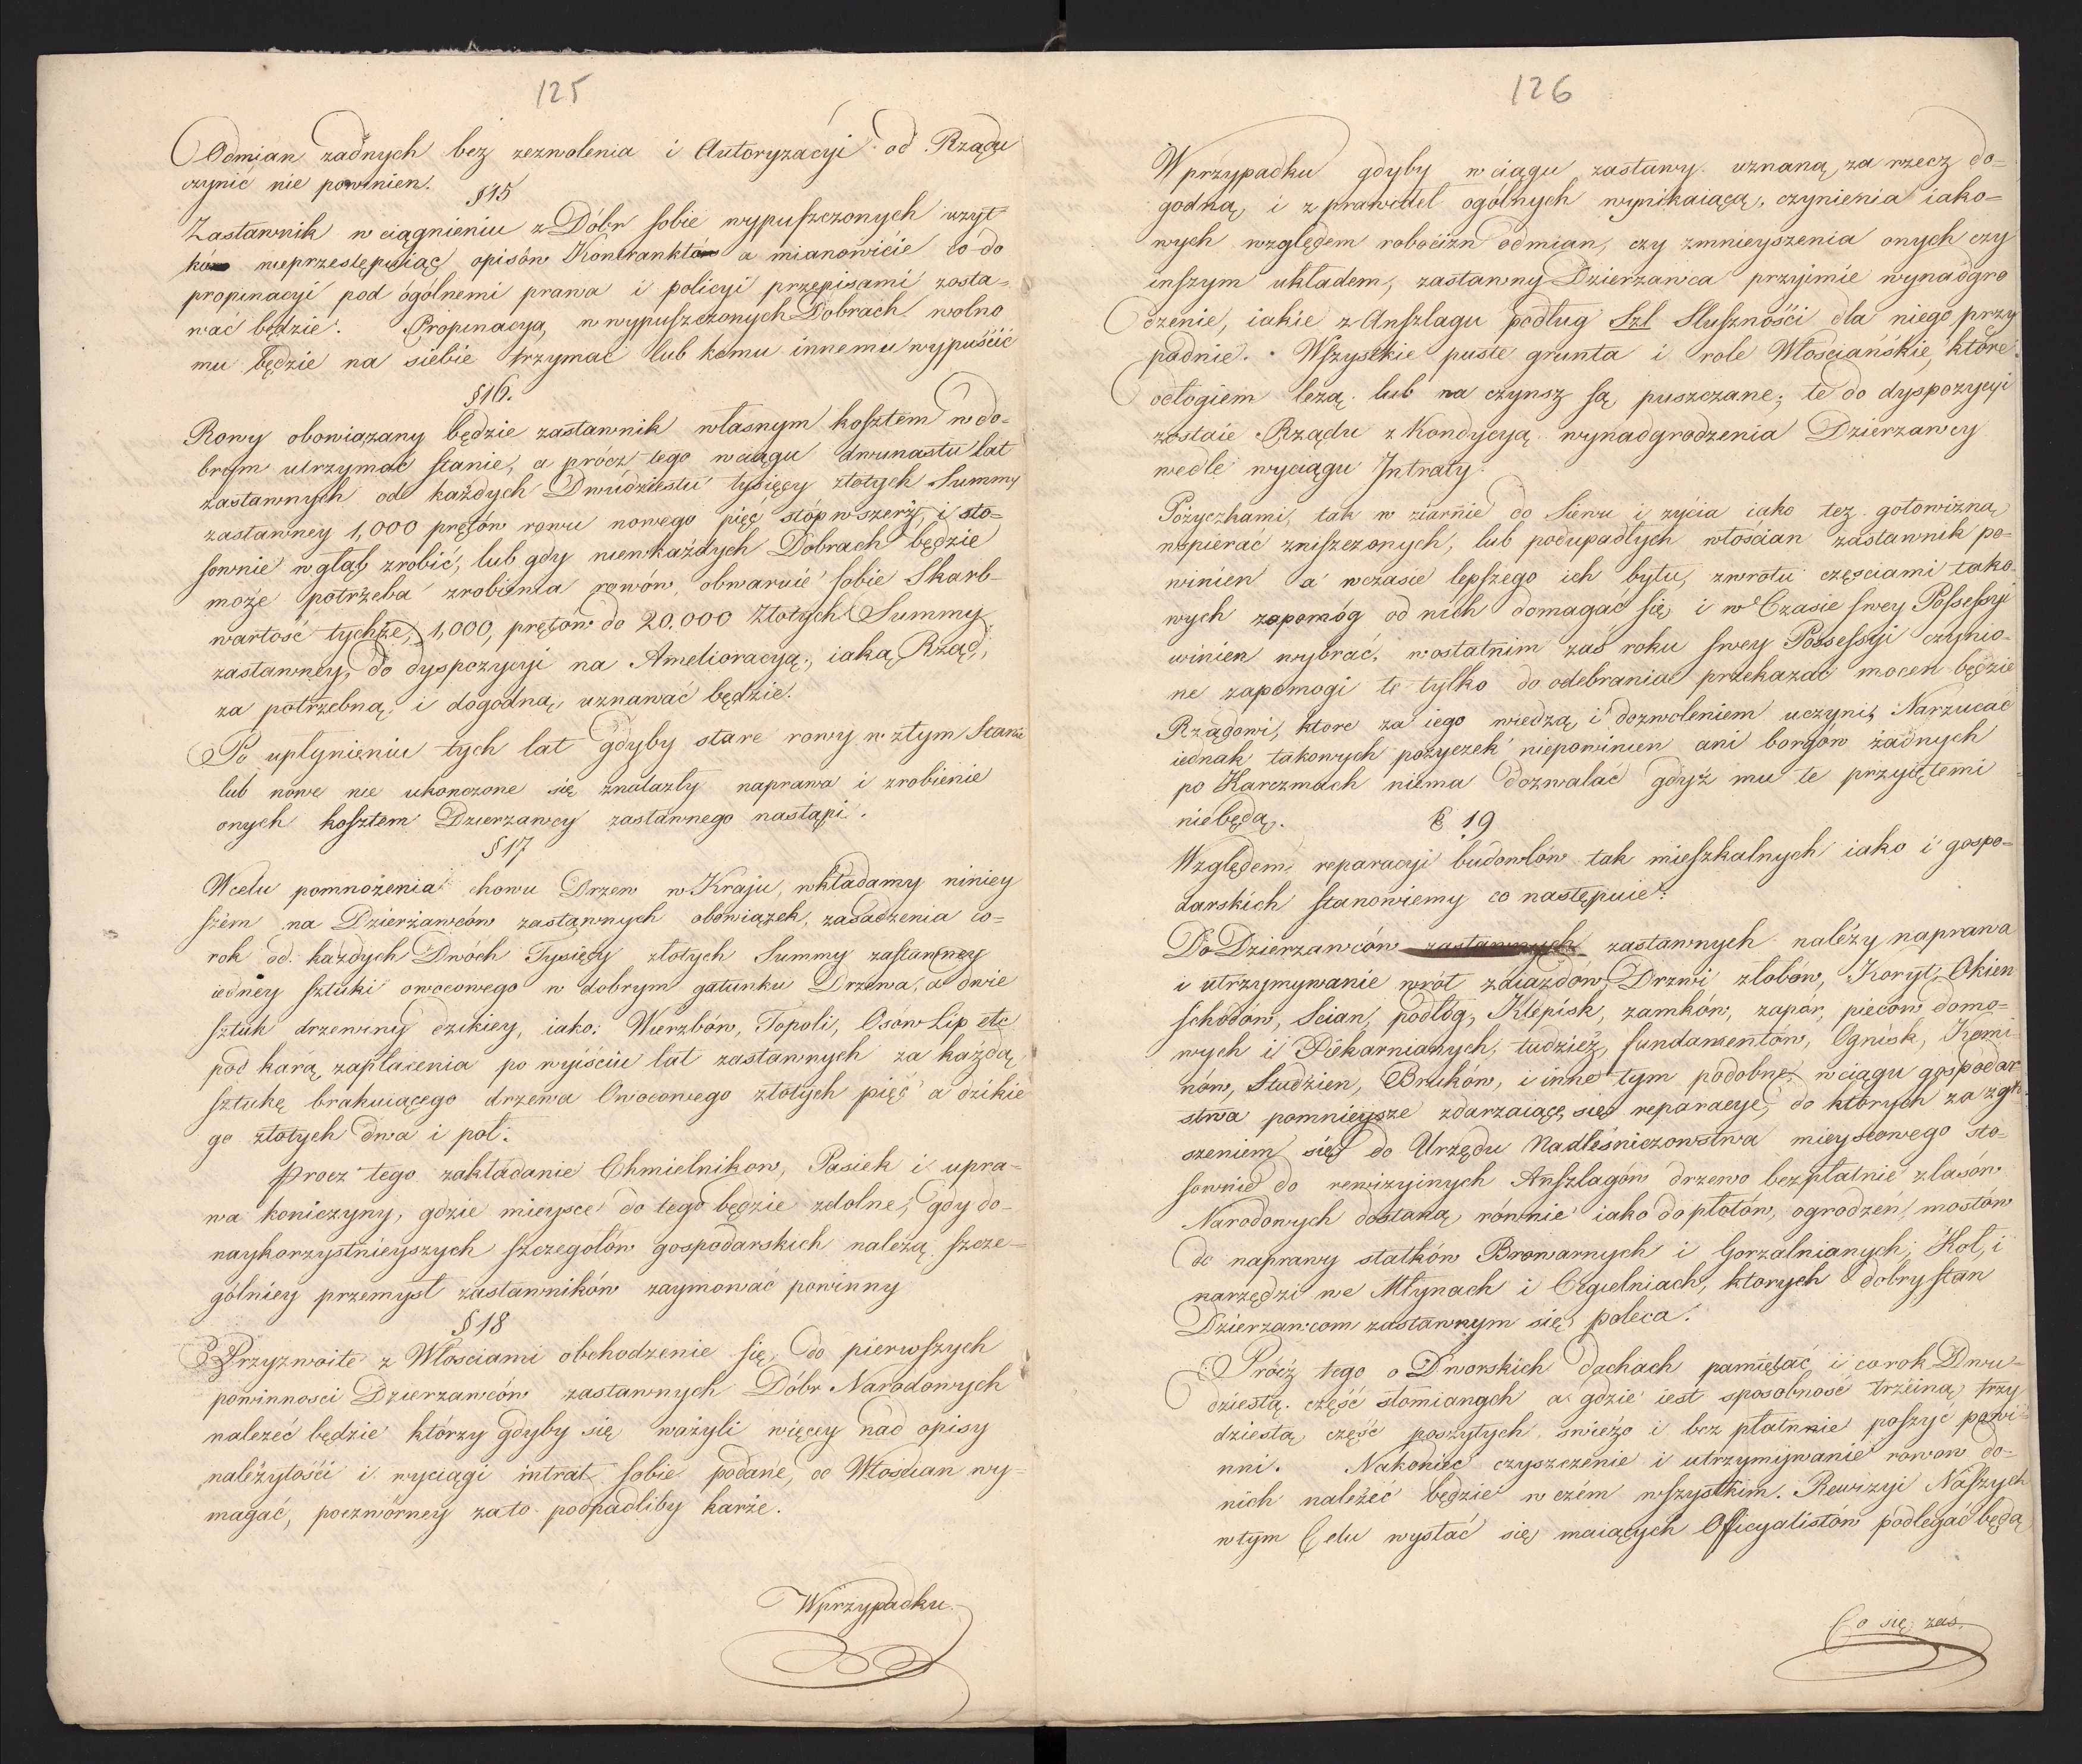 125
Odmian zadnych bez zezwolenia i Autoryzacyi od Rządu
czynić nie powinien.
§15
Zastawnik w ciągnieniu z Dóbr sobie wypuszczonych uzyt
ków nieprzestępuiąc opisów Kontranktów a mianowićie co do
propinacyi pod ogólnemi prawa i policyi przepisami zosta=
wać będzie. Propinacyą, w wypuszczonych Dobrach wolno
mu będzie na siebie trzymać lub komu innemu wypuścić
§16.
Rowy obowiązany będzie zastawnik własnym kosztem w do-
brym utrzymać stanie, a prócz tego w ciągu dwunastu lat
zastawnych od każdych Dwudziestu tysięcy złotych Summy
zastawney 1,000 prętów rowu nowego pięć stóp wszerz, i sto=
sownie w głąb zrobić, lub gdy niewkażdych Dobrach będzie
może potrzeba zrobienia rowów, obwaruie sobie Skarb
wartość tychże, 1,000, prętów do 20,000 Złotych Summy
zastawney, do dyspozycyi na Amelioracyą, iaką Rząd,
za potrzebną, i dogodną, uznawać będzie.
Po upłynieniu tych lat gdyby stare rowy w złym Stanie
lub nowe nie ukończone się znalazły naprawa i zrobienie
onych kosztem Dzierzawcy zastawnego nastąpi.
§17
Wcelu pomnożenia chowu Drzew w Kraju, wkładamy niniey
szém na Dzierżawców zastawnych obowiązek, zasadzenia co=
rok od każdych Dwóch Tysięcy złotych Summy zastawney
iedney sztuki owocowego w dobrym gatunku Drzewa, a dwie
sztuk drzewiny dzikiey, iako: Wierzbów, Topoli, Osow Lip etc
pod karą zapłacenia po wyiściu lat zastawnych za każdą
sztukę brakuiącego drzewa Owocowego złotych pięć a dzikie
go złotych dwa i poł.
Procz tego zakładanie Chmielnikow, Pasiek i upra=
wa koniczyny, gdzie mieysce do tego będzie zdolne, gdy do-
naykorzystnieyszych szczegołów gospodarskich należą, szcze=
gólniey przemysł zastawników zaymować powinny
§18
Przyzwoite z Włościami obchodzenie się, do pierwszych
powinnosci Dzierzawców zastawnych Dóbr Narodowych
nalezeć będzie którzy gdyby się ważyli więcey nad opisy
należytości i wyciągi intrat sobie podane, od Włościan wy=
magać, poczwórney zato podpadliby karże.
Wprzypadku
126
W przypadku gdyby w ciągu zastawy uznaną, za rzecz do=
godną, i z prawideł ogólnych wynikaiącą, czynienia iako=
wych względem robocizn odmian, czy zmnieyszenia onych czy
inszym układem, zastawny Dzierzawca przyimie wynadgro
dzenie, iakie z Anszlagu podług Szl Słuszności dla niego przy
padnie. Wszystkie puste grunta i role Włosciańskie, które
odłogiem leżą. lub na czynsz są puszczane, te do dyspozycyi
zostaie Rządu z Kondycyą wynadgrodzenia Dzierzawcy
wedle wyciągu Intraty.
Pożyczkami, tak w ziarnie do Siewu i zycia iako tez gotowizną
wspierac zniszczonych, lub podupadłych włościan zastawnik po=
winien a w czasie lepszego ich bytu, zwrotu częsciami tako
wych zapomóg od nich domagać się i w Czasie swey Possessyi
winien wybrać, w ostatnim zaś roku swey Possessyi czynio=
ne zapomogi te tylko do odebrania przekazać mocen będzie
Rządowi, ktore za iego wiedzą, i dozwoleniem uczyni, Narzucać
iednak takowych pożyczek niepowinien ani borgów żadnych
po Karczmach niema dozwalać gdyż mu te przyiętemi
niebędą.
§ 19
Względem reparacyi budowlów tak mieszkalnych iako i gospo=
darskich stanowiemy co następuie:
Do Dzierzawców zastawnych zastawnych należy naprawa
i utrzymywanie wrót zdiazdów, Drzwi złobów, Koryt, Okien
schodów, Scian, podłóg, Klepisk, zamków, zapór, pieców domo=
wych i Piekarnianych, tudzież, fundamentów, Ognisk, Komi
nów, Studzien, Bruków, i inne tym podobne, w ciągu gospodar
stwa pomnieysze zdarzaiące się reparacye, do których za zgło
szeniem się do Urzędu Nadleśniczowstwa mieyscowego sto=
sownie do rewizyinych Anszlagów drzewo bezpłatnie z lasów
Narodowych dostaną, równie iako do płotów, ogrodzeń, mostów
do naprawy statków Browarnych i Gorzalnianych, Kół, i
narzędzi we Młynach i Cegielniach, ktorych dobry stan
Dzierzawcom zastawnym się poleca.
Prócz tego o Dworskich dachach pamiętać i corok Dwu=
dziestą część słomianych a gdzie iest sposobność trzciną trzy
dziestą część poszytych swieżo i bez płatnie poszyć powi=
nni. Nakoniec czyszczenie i utrzymywanie rowow do=
nich należeć będzie w czém wszystkim. Rewizyi Naszych
w tym Celu wysłać się maiących Officyalistów podlegać będą
Co się zaś